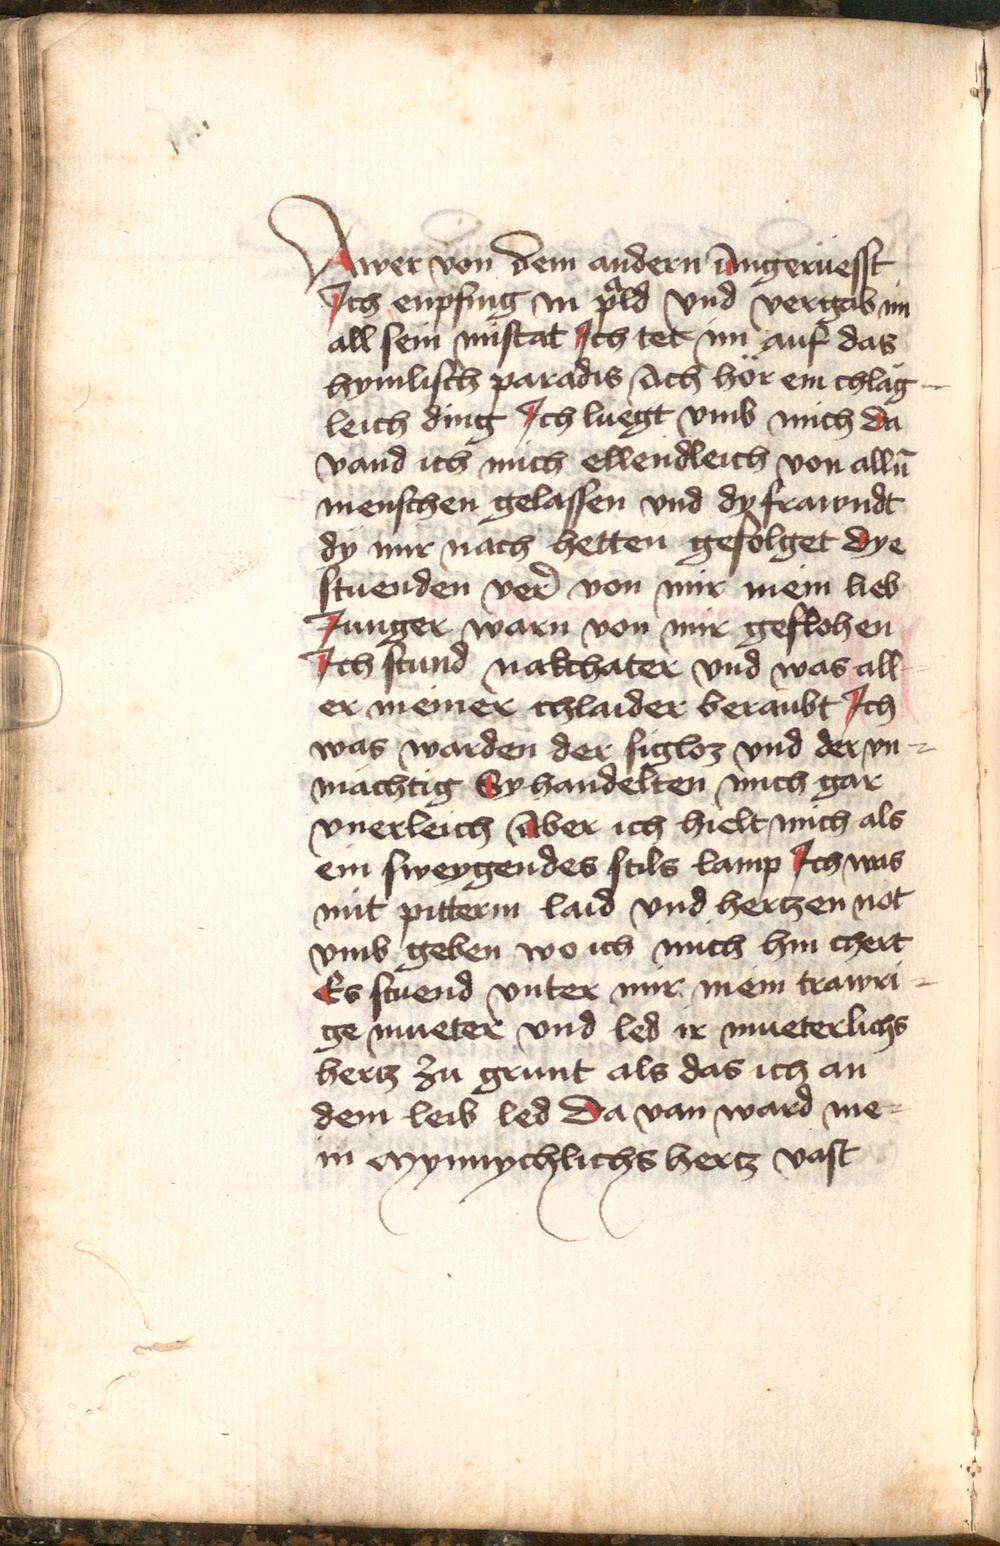 Awer von dem andern Angerüesst
Ich enpfing in pald vnd vergab im
all sein mistat Ich tet im auf das
hymlisch paradis Ach hör ein chläg-
leich ding Ich luegt vmb mich Da
vand ich mich ellendleich von alln̄
menschen gelassen vnd dy frawndt
dy mir nach hetten gefolget Dye
stuenden ver von mir mein lieb
Junger warn von mir geflohen
Ich stund nakchater vnd was all-
er meiner chlaider beraubt Ich
was warden der sigloz vnd der vn-
mächtig Sy handelten mich gar
vnerleich Aber ich hielt mich als
ein sweygendes stils lamp Ich was
mit pitterm laid vnd hertzen not
vmb geben wo ich mich hin chert
Es stuend vnter mir mein trawri-
ge mueter vnd led ir mueterlichs
hertz zu grunt als das ich an
dem leib led Da van ward me-
in mynnychlichs hertz vast